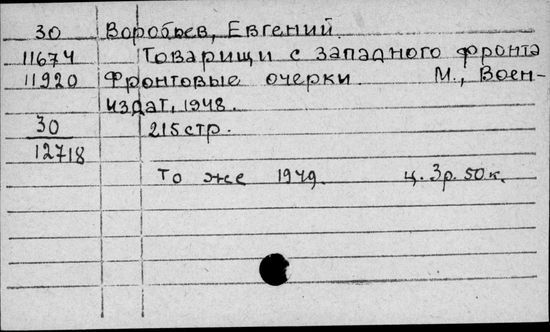 30 Воробьев, Евгений.
11674 Товарищи с западного фронта
11920 Фронтовые очерки. М., Воен-
издат, 1948.
30 215 стр.
12718
То же 1949. ц. 3р. 50к.